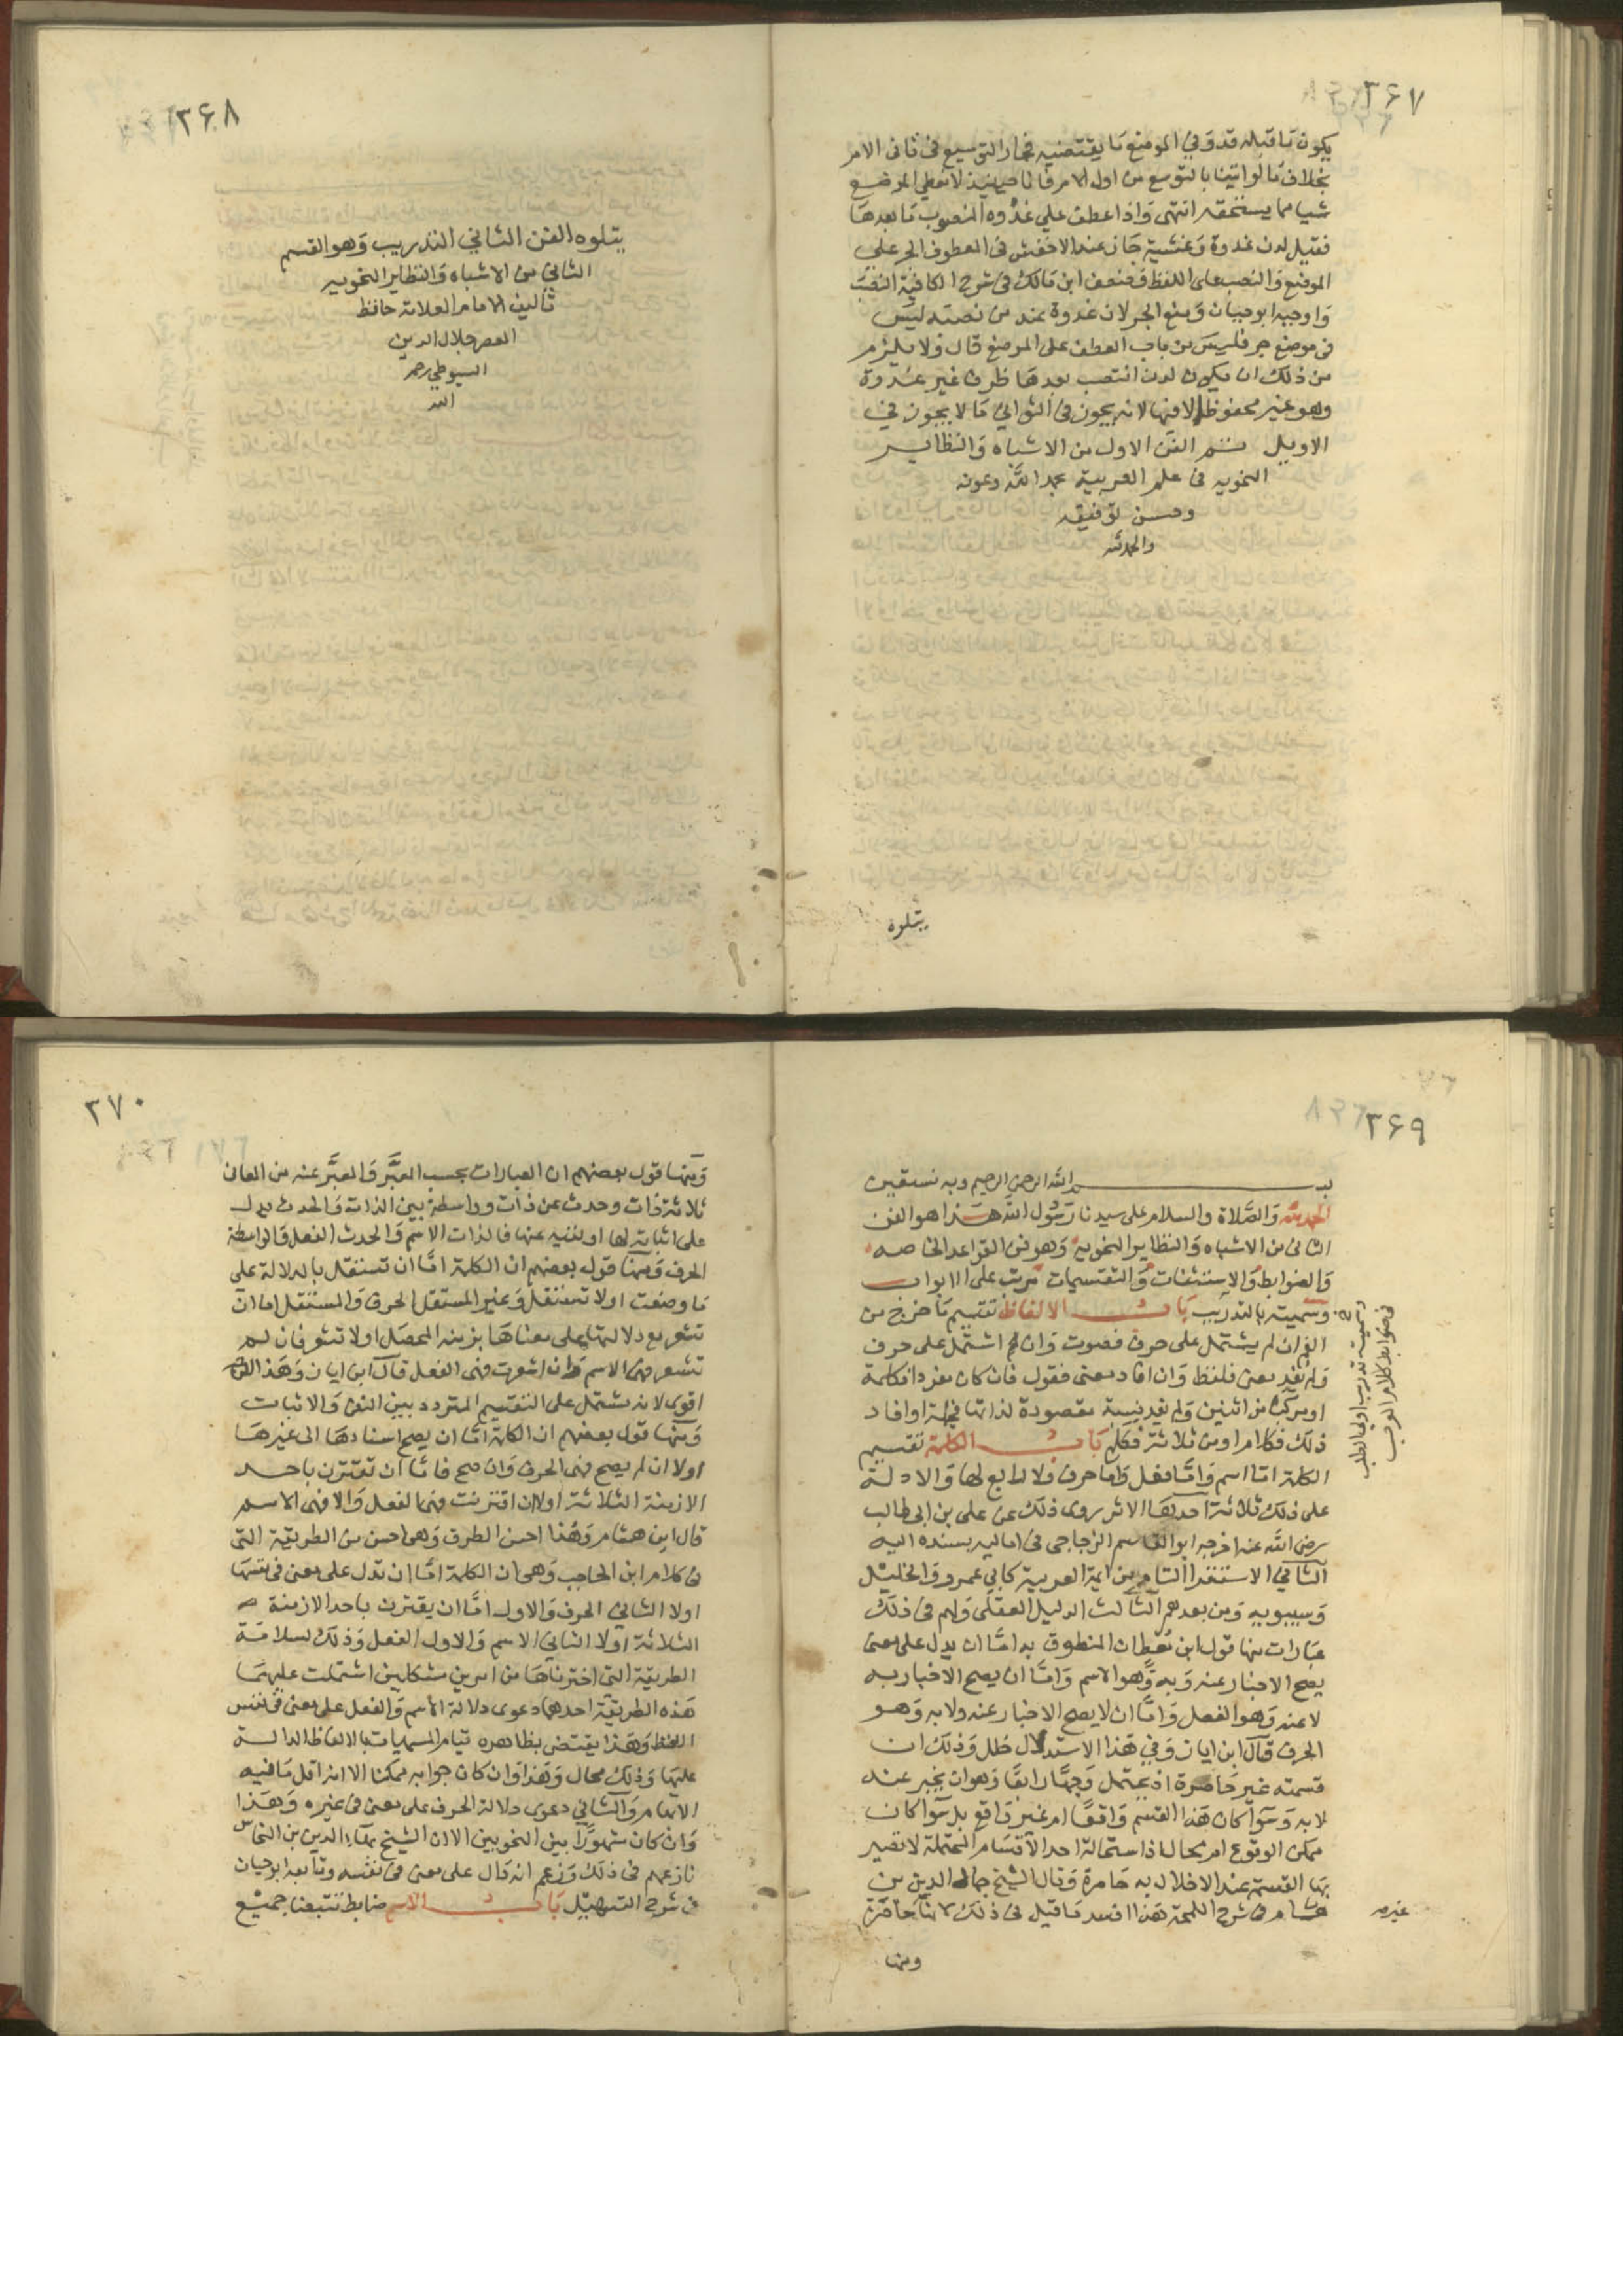 ٣۶٧
يكون ما قبله قد وفي الموضع ما يقتضيه فجاز التوسيع في ثاني الامر
بخلاف ما لو اتينا بالتوسع من اول الامر فانا حينئذ لا نعطي الموضع
شيا مما يستحقه انتهى واذا عطف علي غدوه المنصوب ما بعدها
فقيل لدن غدوة وعشية جاز عند الاخفش في المعطوف الجر على
الموضع والنصب على اللفظ فضعف ابن مالك في شرح الكافية النصب
واوجبه ابو حيان ومنع الجر لان غدوة عند من نصبه ليس
في موضع جر فليس من باب العطف على الموضع قال ولا يلزم
من ذلك ان يكون لدن انتصب بعدها ظرف غير غدوة
وهو غير محفوظ الا فيها لانه يجوز في الثواني ما لا يجوز في
الاويل تم الفن الاول من الاشباه والنظاير
النحويه في علم العربية بحمد الله وعونه
وحسن توفيقه
والحمد لله
يتلوه
٣۶٨
يتلوه الفن الثاني التدريب وهو القسم
الثاني من الاشباه والنظاير النحويه
تأليف الامام العلامة حافظ
العصر جلال الدين
السيوطي رحمه
الله
٣۶٩
بسم الله الرحمن الرحيم وبه نستعين
الحمد لله والصلاة والسلام على سيدنا رسول الله هذا هو الفن
الثاني من الاشباه والنظاير النحويه وهو فن القواعد الخاصه
والضوابط والاستثنات والتقسيمات مرتب على الابواب
وسميته بالتدريب باب الالفاظ تقسيم ما خرج من
الفم ان لم يشتمل على حرف فصوت وان اشتمل على حرف
ولم يفد معنى فلفظ وان افاد معنى فقول فان كان مفردا فكلمة
او مركبا من اثنين ولم يفد نسبة مقصودة لذاتها فجملة او افاد
ذلك فكلام او من ثلاثة فكلم باب الكلمة تقسيم
الكلمة اما اسم واما فعل واما حرف ولا رابع لها والادلة
على ذلك ثلاثة احدها الاثر روى ذلك عن علي بن ابي طالب
رضي الله عنه اخرجه ابو القاسم الزجاجي في اماليه بسنده اليه
الثاني الاستقرا التام من ايمة العربية كابي عمرو والخليل
وسيبويه ومن بعدهم الثالث الدليل العقلي ولهم في ذلك
عبارات منها قول ابن معط ان المنطوق به اما ان يدل على معنى
يصح الاخبار عنه وبه وهو الاسم واما ان يصح الاخبار به
لا عنه وهو الفعل واما ان لا يصح الاخبار عنه ولا به وهو
الحرف قال ابن اياز وفي هذا الاستدلال خلل وذلك ان
قسمته غير حاصرة اذ يحتمل وجها رابعا وهو ان يخبر عنه
لا به وسوا كان هذا القسم واقعا ام غير واقع بل سوا كان
ممكن الوقوع ام محالا اذ استحالة احد الاقسام المحتملة لا تصير
بها القسمة عند الاخلال به حاصرة وقال الشيخ جمال الدين بن
هشام في شرح اللمحة هذا افسد ما قيل في ذلك لانها حاصرة
غير صح
وسميته تدريب اولي الطلب
في ضوابط كلام العرب
ومنها
٣٧٠
ومنها قول بعضهم ان العبارات بحسب المعبَّر والمعبَّر عنه من المعاني
ثلاثة ذات وحدث عن ذات وواسطة بين الذات والحدث يدل
على اثباته لها او نفيه عنها فالذات الاسم والحدث الفعل والواسطة
الحرف ومنها قول بعضهم ان الكلمة اما ان تستقل بالدلالة على
ما وضعت له او لا تستقل وغير المستقل الحرف والمستقل اما ان
تشعر مع دلالتها على معناها بزمنه المحصل او لا تشعر فان لم
تشعر فهي الاسم وان اشعرت فهي الفعل قال ابن اياز وهذا الوجه
اقوى لانه يشتمل على التقسيم المتردد بين النفي والاثبات
ومنها قول بعضهم ان الكلمة اما ان يصح اسنادها الى غيرها
اولا ان لم يصح فهي الحرف وان صح فاما ان تقترن باحد
الازمنة الثلاثة اولا ان اقترنت فهي الفعل والا فهي الاسم
قال ابن هشام وهذا احسن الطرق وهي احسن من الطريقة التي
في كلام ابن الحاجب وهي ان الكلمة اما ان تدل على معنى في نفسها
اولا الثاني الحرف والاول اما ان يقترن باحد الازمنة
الثلاثة اولا الثاني الاسم والاول الفعل وذلك لسلامة
الطريقة التي اخترناها من امرين مشكلين اشتملت عليهما
هذه الطريقة احدهما دعوى دلالة الاسم والفعل على معنى في نفس
اللفظ وهذا يقتضي بظاهره قيام المسميات بالالفاظ الدالة
عليها وذلك محال وهذا وان كان جوابه ممكنا الا انه اقل ما فيه
الابهام والثاني دعوى دلالة الحرف على معنى في غيره وهذا
وان كان مشهورا بين النحويين الا ان الشيخ بهاء الدين بن النحاس
نازعهم في ذلك وزعم انه دال على معنى في نفسه وتابعه ابو حيان
في شرح التسهيل باب الاسم ضابط تتبعنا جميع